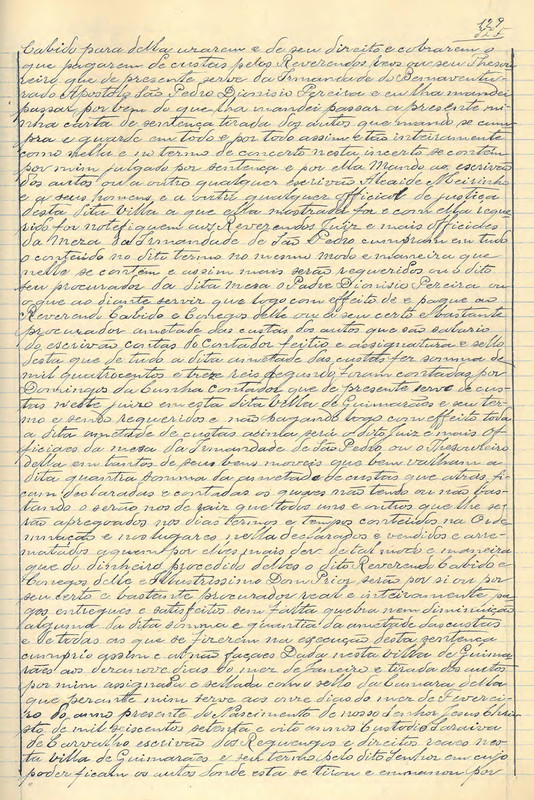 129
Cabido para della uzarem e de seu direito e cobrarem o
que pagarem de custas pelos Reverendos reos ou seu Thesou
reiro que de presente serve da Irmandade do Bemaventu
rado Apostolo São Pedro Dionisio Pereira e eu lha mandei
passar por bem do que lha mandei passar a presente mi
nha carta de sentença tirada dos autos que mando se cum
pra e guarde em todo e por todo assim e tão inteiramente
como nella e no termo de concerto nesta incerto se contem
por mim julgado por sentença e por ella Mando ao escrivão
dos autos ou a outro qualquer escrivão Alcaide Meirinho
e a seus homens e a outro qualquer official de justiça
desta dita villa a que esta mostrada for e com ella reque
rido for notefiquem aos Reverendos Juiz e mais officiaes
da Meza da Irmandade de São Pedro cumpram em tudo
o contehudo no dito termo no mesmo modo e maneira que
nelle se contem e assim mais serão requeridos ou o dito
seu procurador da dita mesa o Padre Dionisio Pereira ou
o que ao diante servir que logo com effeito de e pague ao
Reverendo Cabido e Conegos delle ou a seu certo e bastante
procurador ametade das custas dos autos que são salario
do escrivão contas do Contador feitio e assignatura e sello
desta que de tudo a dita ametade das custas fez somma de
mil quatrocentos e treze reis segundo foram contadas por
Domingos da Cunha contador que de presente serve de cus
tas neste juizo em esta dita villa de Guimarães e seu ter
mo e sendo requeridos e não pagando logo com effeito toda
a dita ametade de custas acima será o dito Juiz e mais of
ficiaes da mesa da Irmandade de São Pedro ou o Thesoureiro
della em tantos de seus bens moveis que bem valham a
dita quantia somma da ametade de custas que atras fi
cam declaradas e contadas os quaes não tendo ou não bas
tando o serão nos de raiz que todos uns e outros que lhe se
rão apregoados nos dias termos e tempos conteudos na Orde
nnação e nos lugares nella declarados e vendidos e arre
matados a quem por elles mais der de tal modo e maneira
que do dinheiro procedido delles o dito Reverendo Cabido e
Conegos delle e Illustrissimo Dom Prior serão por si ou por
seu certo e bastante procurador real e inteiramente pa
gos entregues e satisfeitos sem falta quebra nem diminuição
alguma da dita somma e quantia da ametade das custas
e de todas as que se fizerem na execução desta sentença
cumpri-o assim e al não façaes Dada nesta villa de Guima
rães aos dezanove dias do mez de Janeiro e tirada dos autos
por mim assignada e sellada com o sello da Camara della
que perante mim serve aos onze dias do mez de Feverei
ro do anno presente do Nascimento de nosso Senhor Jesus Chris
to de mil seiscentos setenta e oito annos Custodio Saraiva
de Carvalho escrivão dos Reguengos e direitos reaes nes
ta villa de Guimarães e seu termo pelo dito Senhor em cujo
poder ficam os autos donde esta se tirou e emmanou por